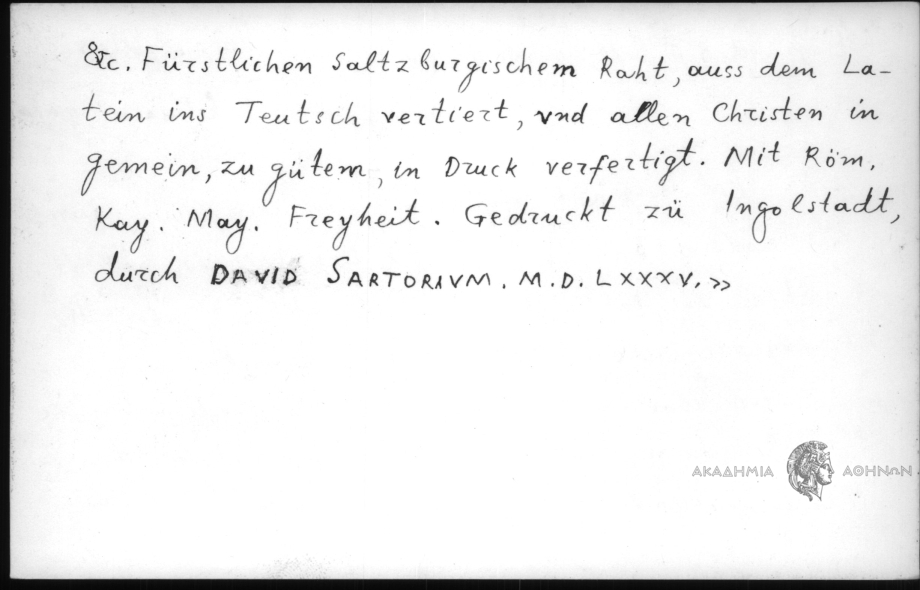 &c. Fürstlichen Saltzburgischem Raht, auss dem La-
tein ins Teutsch vertiert, vnd allen Christen in
gemein, zu gütem, in Druck verfertigt. Mit Röm.
Kay. May. Freyheit. Gedruckt zü Ingolstadt,
durch DAVID SARTORIVM. M.D.LXXXV.»
ΑΚΑΔΗΜΙΑ ΑΘΗΝΩΝ